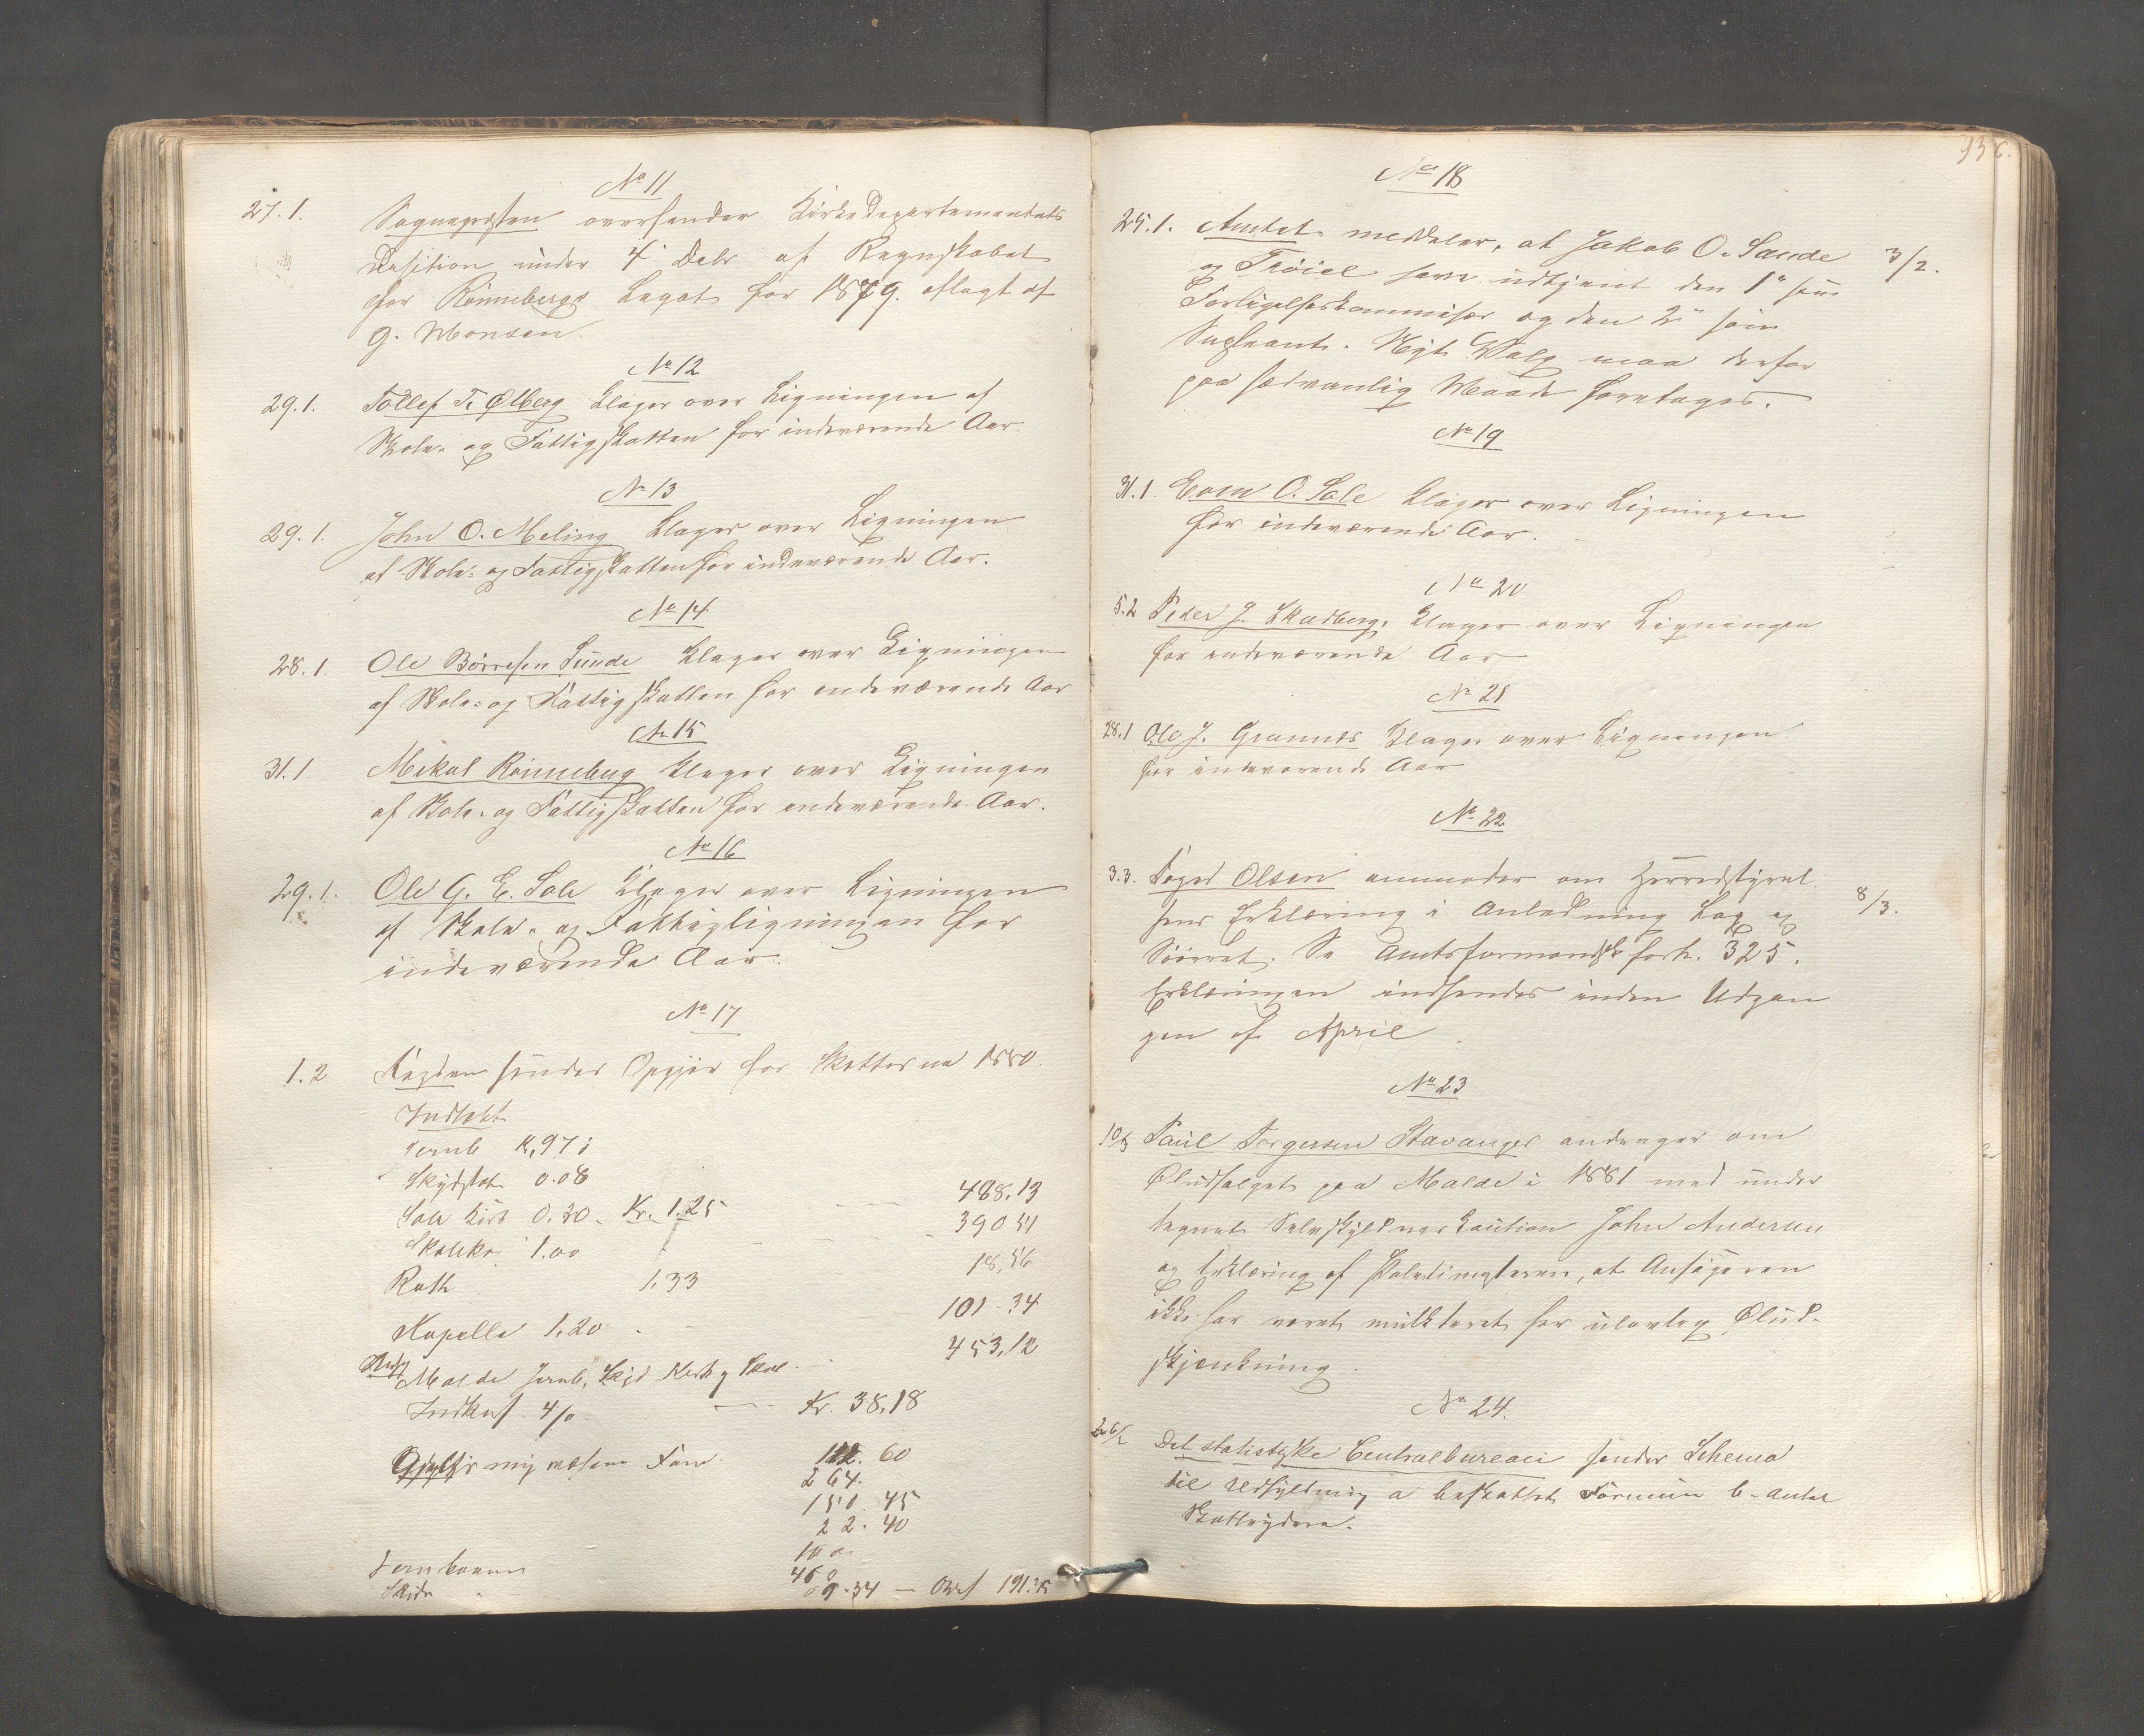 No 11
27.1. Sognepresten oversender Kirkedepartementets
Desition under 4 Debr af Regnskabet
for Rönnebergs Legat for 1879. aflagt af
G. Monsen.
No 12
29.1. Tollef T. Ølberg klager over Ligningen af
Skole- og Fattigskatten for indeværende Aar.
No 13
29.1. John O. Meling klager over Ligningen
af Skole- og Fattigskatten for indeværende Aar.
No 14
28.1. Ole Börresen Sunde klager over Ligningen
af Skole- og Fattigskatten for indeværende Aar
No 15
31.1 Mikal Rönneberg klager over Ligningen
af Skole- og Fattigskatten for indeværende Aar.
No 16
29.1. Ole G. E. Sole klager over Ligningen
af Skole- og Fattigligningen for
indeværende Aar.
No 17
1.2 Fogden sender Opgjör for Skatterne 1880.
Indtekt
Jernb
Skydsk 0.08
Sole Kirk 0.30. Kr. 1.25 488.13
Skolek. 1.00 390 51
Roth 1.33 18,56
Kapella 1.20 101-34
453,12
Malde Jernb, Skyds Kirk og Skole
Indkr 4/0 Kr. 38,18
60
264.
150. 45
22. 40
100
Jernbanen 460
Skyds 9.34 — 191.
936.
No 18
25.1. Amtet meddeler, at Jakob O. Sande 3/2.
og Tröiel have udtjent den 1" som
Forligelseskommisær og den 2" som
Supleant. Nyt Valg maa derfor
paa sædvanlig Maade foretages.
No 19
31.1. Even O. Sole klager over Ligningen
for indeværende Aar.
No 20
5.2 Peder J. Skadberg, klager over Ligningen
for indeværende Aar
No 21
28.1 Ole J. Grannes klager over Ligningen
for indeværende Aar
No 22
3.3. Foged Olsen anmoder om Herredstyrel
sens Erklæring i Anledning Lov og 8/3.
Se Amtsformandsk forh. 325.
Erklæringen indsendes inden Udgan
gen af April
No 23
10/3 Paul Torgersen Stavanger andrager om
Öludsalget paa Malde i 1881 med under
tegnet Selvskyldnerkaution John Andersen
og Erklæring af Politimesteren, at Ansögeren
ikke har været mulkteret for ulovlig Ölud-
skjenkning.
No 24.
26/2 Det statistiske Centralbureau sender Schema
til Udfyldning a beskattet Formue b. antal
Skatteydere.